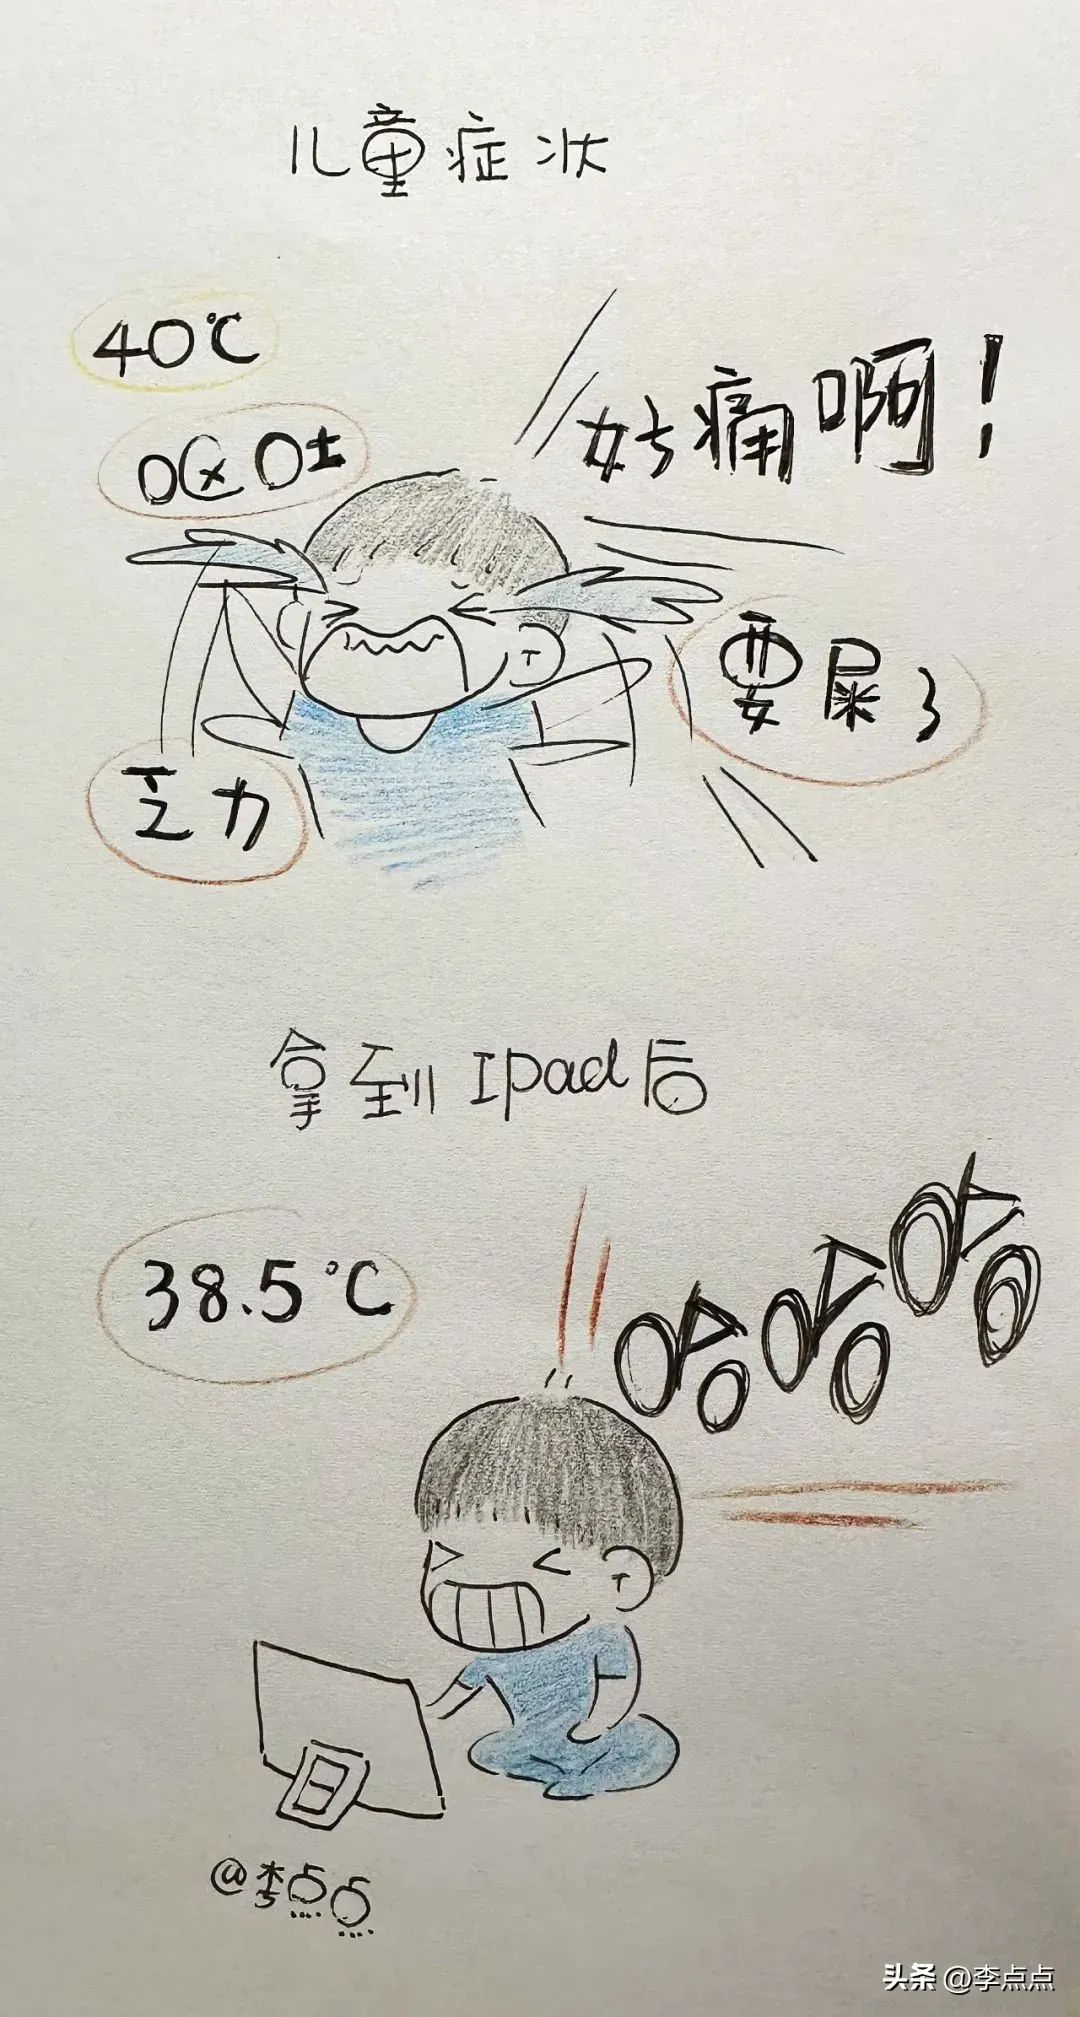 儿童症状
40℃
呕吐
好痛啊！
要屎了
乏力
拿到Ipad后
38.5℃
哈哈哈
@李点点
头条 @李点点